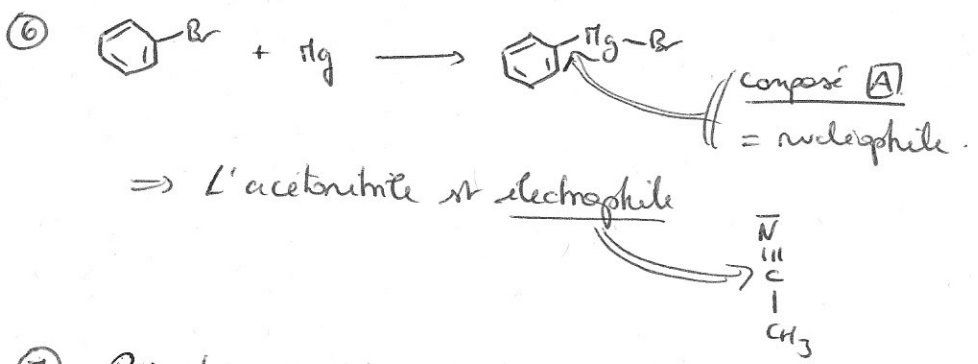 ⑥ Br + Mg ⟶ Mg–Br
composé A
= nucléophile.
⇒ L'acétonitrile est électrophile
N
≡
C
|
CH3
⑦